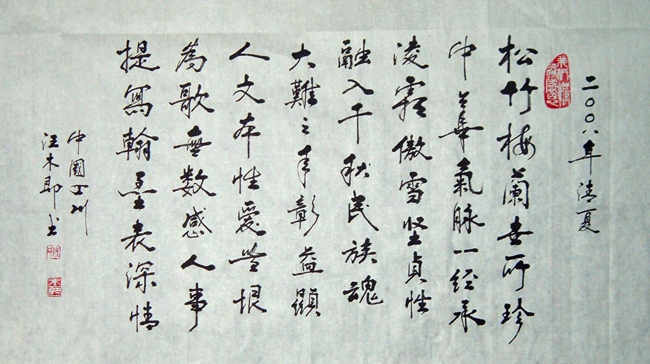 二〇〇八年清夏
松竹梅蘭世所珍
中華氣脉一經承
凌霜傲雪坚貞性
融入千秋民族魂
大難之年彰益顯
人文本性愛與恨
為歌無數感人事
提寫翰墨表深情
中國
汪木即书